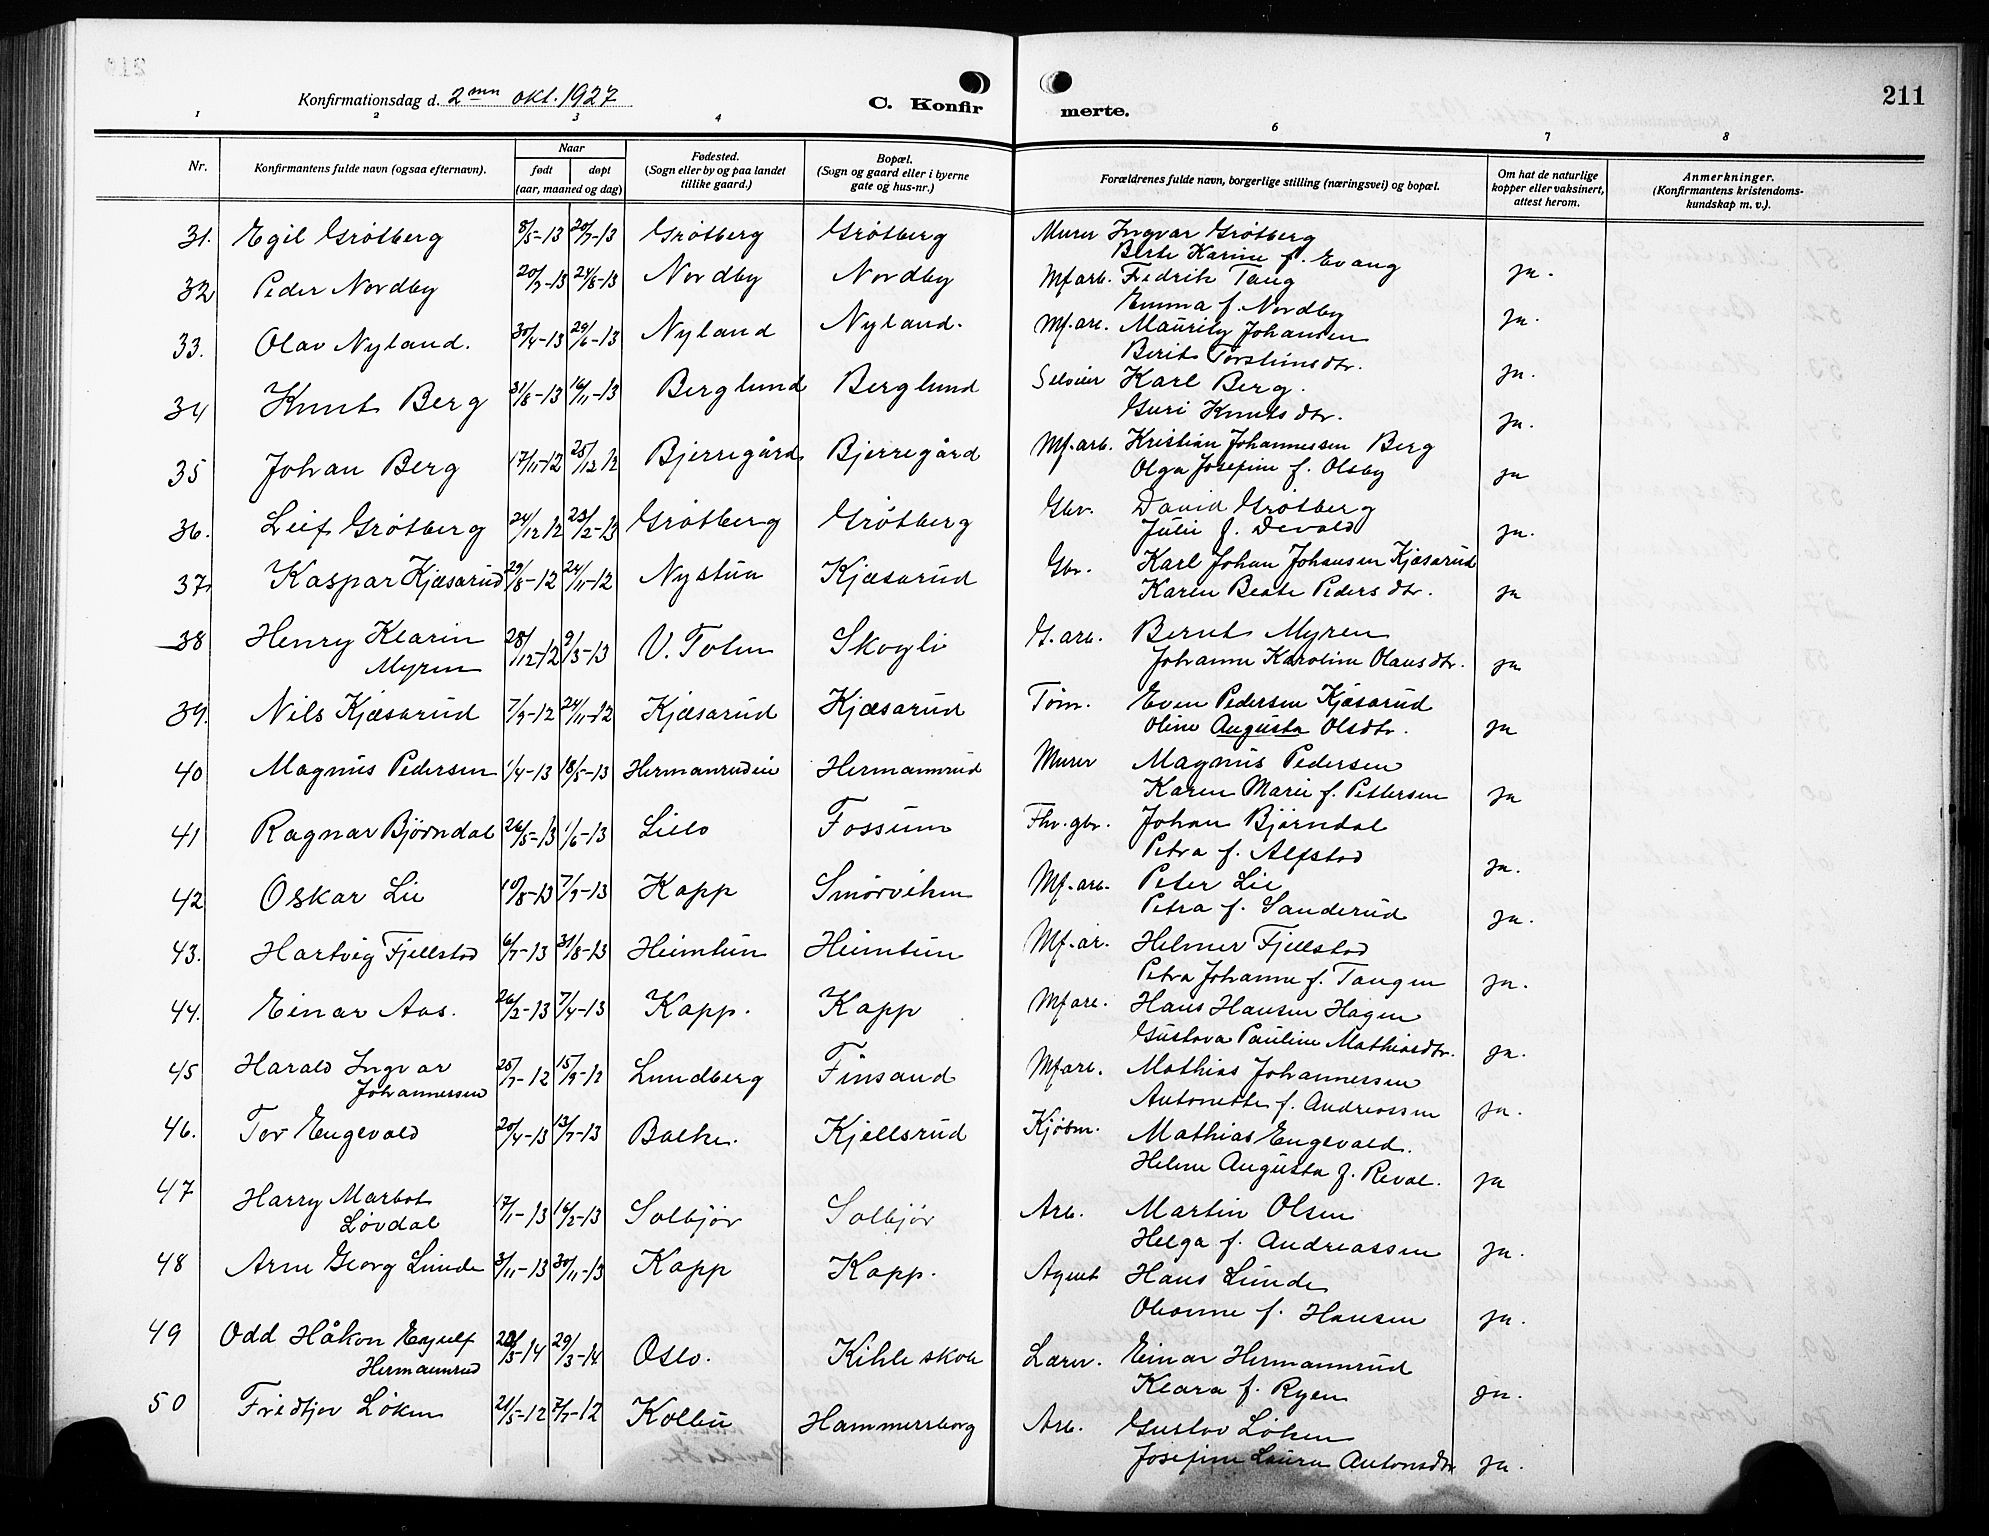 Konfirmationsdag d. 2 okt. 1927
C. Konfirmerte.
211
1 2 3 4 6 7 8
Nr.
Konfirmantens fulde navn (ogsaa efternavn).
Naar
født døpt
(aar, maaned og dag)
Fødested.
(Sogn eller by og paa landet
tillike gaard.)
Bopæl.
(Sogn og gaard eller i byerne
gate og hus-nr.)
Forældrenes fulde navn, borgerlige stilling (næringsvei) og bopæl.
Om hat de naturlige
kopper eller vaksinert,
attest herom.
Anmerkninger.
(Konfirmantens kristendoms-
kundskap m. v.).
31. Egil Grøtberg 8/5-13 20/7-13 Grøtberg Grøtberg Murer Ingvar Grøtberg
Berte Karine f. Evang ja.
32 Peder Nordby 20/7-13 24/8-13 Nordby Nordby Mf arb. Fredrik Tang
Emma f. Nordby ja.
33. Olav Nyland. 30/4-13 29/6-13 Nyland Nyland. Mf. arb. Mauritz Johansen
Berit Torsteinsdtr. ja.
34 Knut Berg 31/8-13 16/11-13 Berglund Berglund Selveier Karl Berg.
Guri Knutsdtr. ja.
35 Johan Berg 17/11-12 25/12 12 Bjerregård Bjerregård Mf-arb. Kristian Johannessen Berg
Olga Josefine f. Olsby ja
36. Leif Grøtberg 24/12 12 23/2-13 Grøtberg Grøtberg Gbr. David Grøtberg
Julie f. Devold ja.
37. Kaspar Kjæsarud 29/8-12 24/11-12 Nystua Kjæsarud Gbr. Karl Johan Johansen Kjæsarud
Karen Beate Pedersdtr. ja
38 Henry Klarin 28/12-12 9/3-13 V. Toten Skogli G. arb. Bernt Myren
Myren Johanne Karoline Olausdtr. ja
39. Nils Kjæsarud 7/9-12 24/11-12 Kjæsarud Kjæsarud Tøm. Even Pedersen Kjæsarud
Oline Augusta Olsdtr. ja
40 Magnus Pedersen 1/4-13 18/5-13 Hermanrudeie Hermannrud Murer Magnus Pedersen
Karen Marie f. Pettersen ja
41 Ragnar Bjørndal 26/5-13 1/6-13 Lillo Fossum Fhv. gbr. Johan Bjørndal
Petra f. Alfstad ja.
42 Oskar Lie 10/8-13 7/9-13 Kapp Smørviken Mf-arb. Peter Lie
Petra f. Sanderud ja.
43. Hartvig Fjellstad 6/7-13 31/8-13 Heimtun Heimtun Mf-ar. Helmer Fjellstad
Petra Johanne f. Tangen ja.
44. Einar Aas. 26/2-13 7/4-13 Kapp. Kapp Mf arb. Hans Hansen Hagen
Gustava Pauline Mathiasdtr. ja.
45 Harald Ingvar 25/7-12 15/9-12 Lundberg Finsand Mf arb. Mathias Johannersen
Johannersen Antonette f. Andreassen ja.
46. Tor Engevald 20/4-13 13/7-13 Balke. Kjellsrud Kjøbm. Mathias Engevald.
Helene Augusta f. Reval. ja
47 Harry Marbot 17/1-13 16/2-13 Solbjør Solbjør Arb. Martin Olsen
Løvdal Helga f. Andreassen ja.
48 Arne Georg Lunde 3/11-13 30/11-13 Kapp Kapp. Agent Hans Lunde
Oleanne f. Hansen ja.
49 Odd Håkon Eyulf /3-14 29/3-14 Oslo. Kihle skole Lærer. Einar Hermannrud
Hermannrud Klara f. Ryen ja.
50 Fridtjov Løken 21/5-12 7/7-12 Kolbu Hammersborg Arb. Gustav Løken
Josefine Laura Antonsdtr ja.